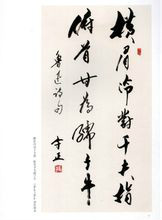 横眉冷對千夫指
俯首甘為孺子牛
魯迅詩句